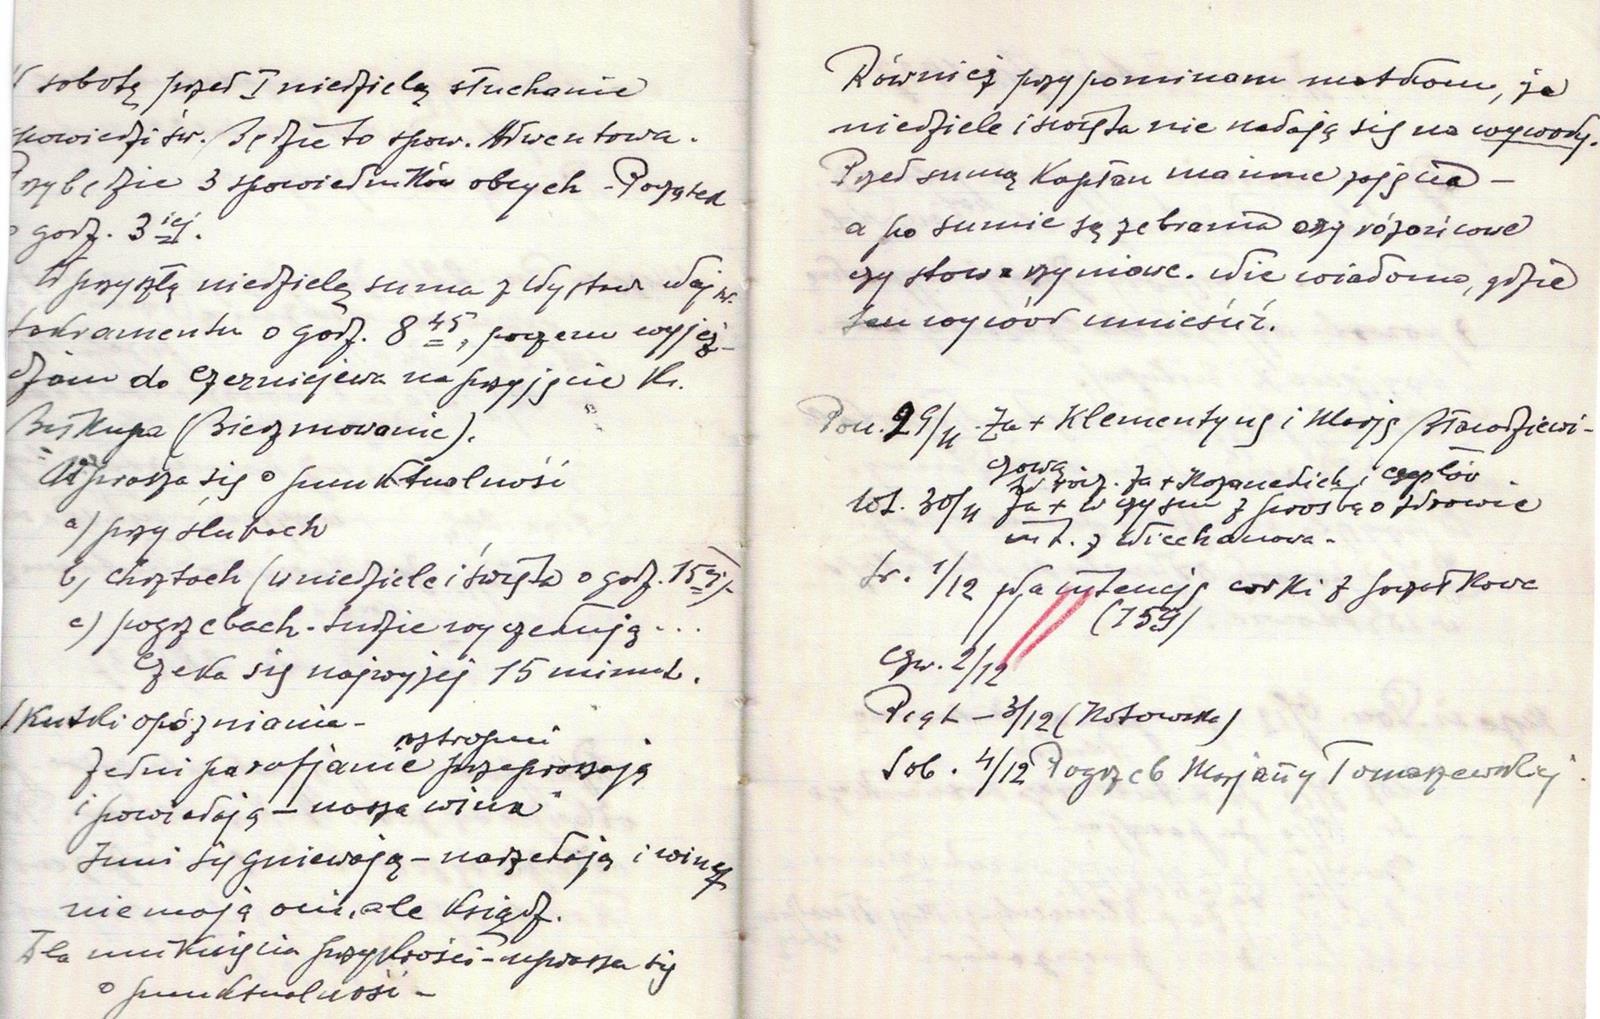 W sobotę przed I niedzielą słuchanie
spowiedzi św. Będzie to spow. Adwentowa.
Przybędzie 3 spowiedników obcych - Początek
o godz. 3 iej.
W przyszłą niedzielę suma z Wystaw. Najśw.
Sakramentu o godz. 8 45, poczem wyjeż-
dżam do Czerniejewa na przyjęcie Ks.
Biskupa (Bierzmowanie).
Uprasza się o punktualność
a) przy ślubach
b) chrztach (w niedziele i święta o godz. 15ej)-
c) pogrzebach - ludzie wyczekują ...
Czeka się najwyżej 15 minut.
Skutki opóźniania -
Jedni parafjanie przepraszają
roztropni
i powiadają - nasza wina
Inni się gniewają - narzekają i winę
nie mają oni, ale ksiądz.
Dla uniknięcia przykrości - uprasza się
o punktualność -
Również przypominam matkom, że
niedziele i święta nie nadają się na wywody.
Przed sumą Kapłan ma inne zajęcia -
a po sumie są zebrania czy różańcowe
czy stowarzyniowe. Nie wiadomo, gdzie
ten wywód umieścić.
Pon. 29/11 - Za + Klementynę i Marję
czową
Wt. 30/11 Za + w czyśćcu z prośbą o zdrowie
int. z Niechanowa -
Śr. 1/12 na intencję córki z
(159)
Czw. 2/12
Piąt - 3/12 (Kotowska)
Sob. 4/12 Pogrzeb Marjanny Tomaszewskiej.